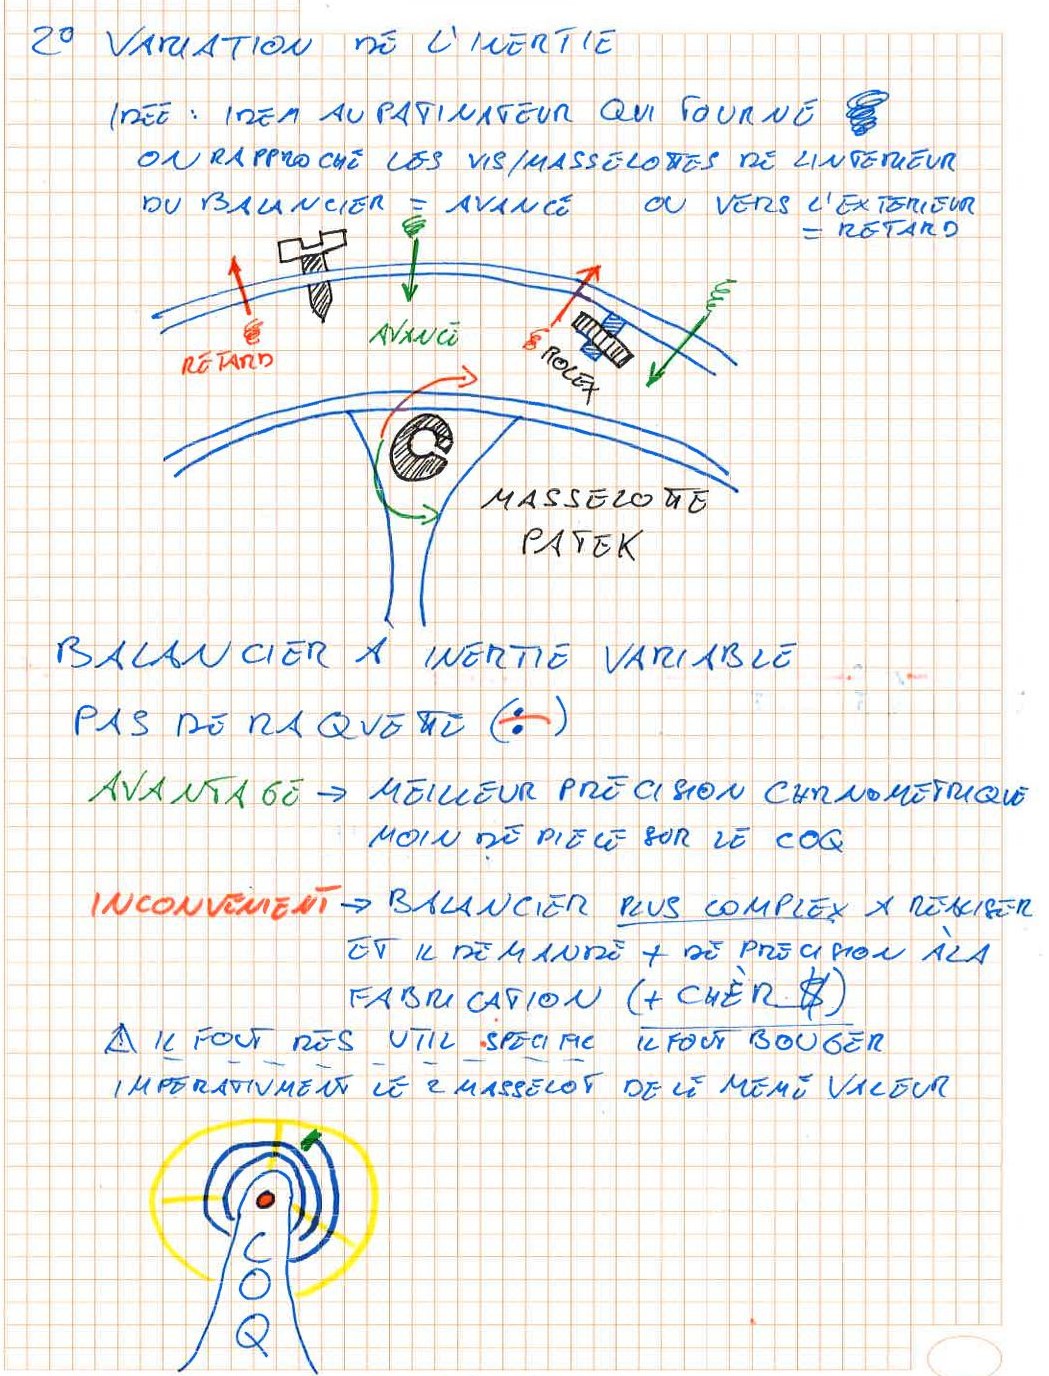 2° VARIATION DE L'INERTIE
IDÉE : IDEM AU PATINATEUR QUI TOURNE
ON RAPPROCHE LES VIS/MASSELOTTES DE L'INTERIEUR
DU BALANCIER = AVANCE OU VERS L'EXTERIEUR
= RETARD
RETARD
AVANCE
ROLEX
MASSELOTTE
PATEK
BALANCIER A INERTIE VARIABLE
PAS DE RAQUETTE (÷)
AVANTAGE → MEILLEUR PRÉCISION CHRNOMETRIQUE
MOIN DE PIECE SUR LE COQ
INCONVENIENT → BALANCIER PLUS COMPLEX A RÉALISER
ET IL DEMANDE + DE PRÉCISION À LA
FABRICATION (+ CHÈR $)
⚠ IL FOUT DES UTIL SPECIFIC IL FOUT BOUGER
IMPERATIVMENT LE 2 MASSELOT DE LE MEME VALEUR
COQ